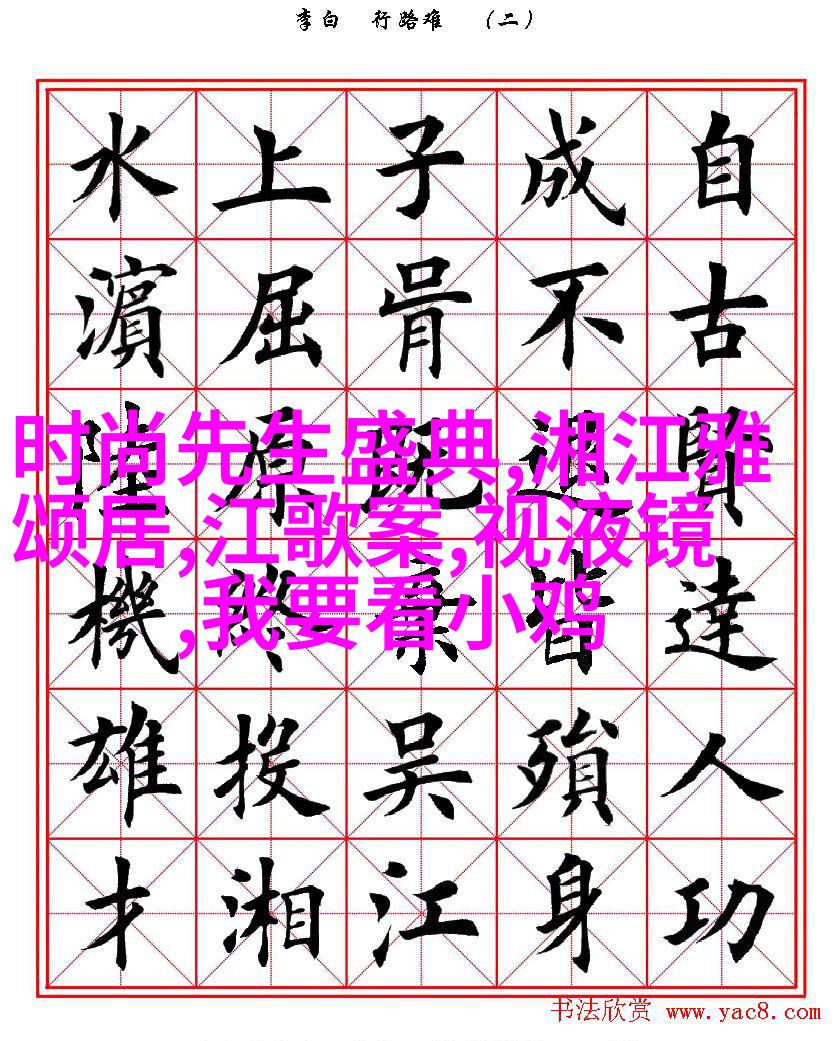 李白 行路难 （二）
自古賢達人功
成不退皆殞身
子胥既棄吴江
上屈原終投湘
水濱陸機雄才
时尚先生盛典,湘江雅
颂居,江歌案,视液镜
,我要看小鸡
书法欣赏 www.yac8.com